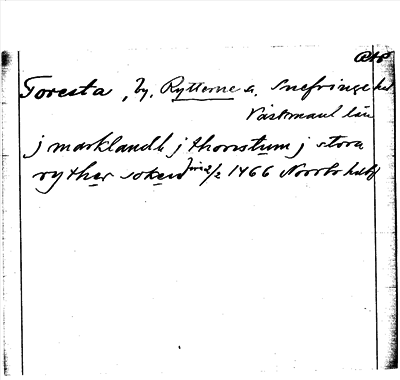 Toresta, by, Rytterne s. Snefringe hd
Västmanl län
j marklandh j thorestum j stora
ryther soken 2/2 1466